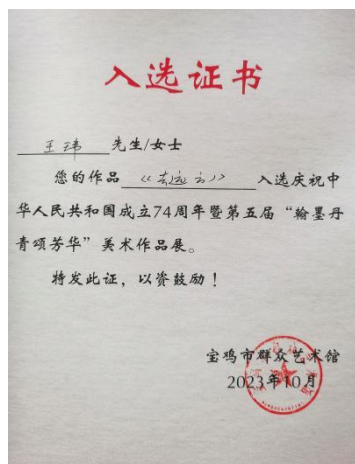 入选证书
王玮 先生/女士
您的作品《去远方》入选庆祝中
华人民共和国成立74周年暨第五届“翰墨丹
青颂芳华”美术作品展。
特发此证，以资鼓励！
宝鸡市群众艺术馆
2023年10月